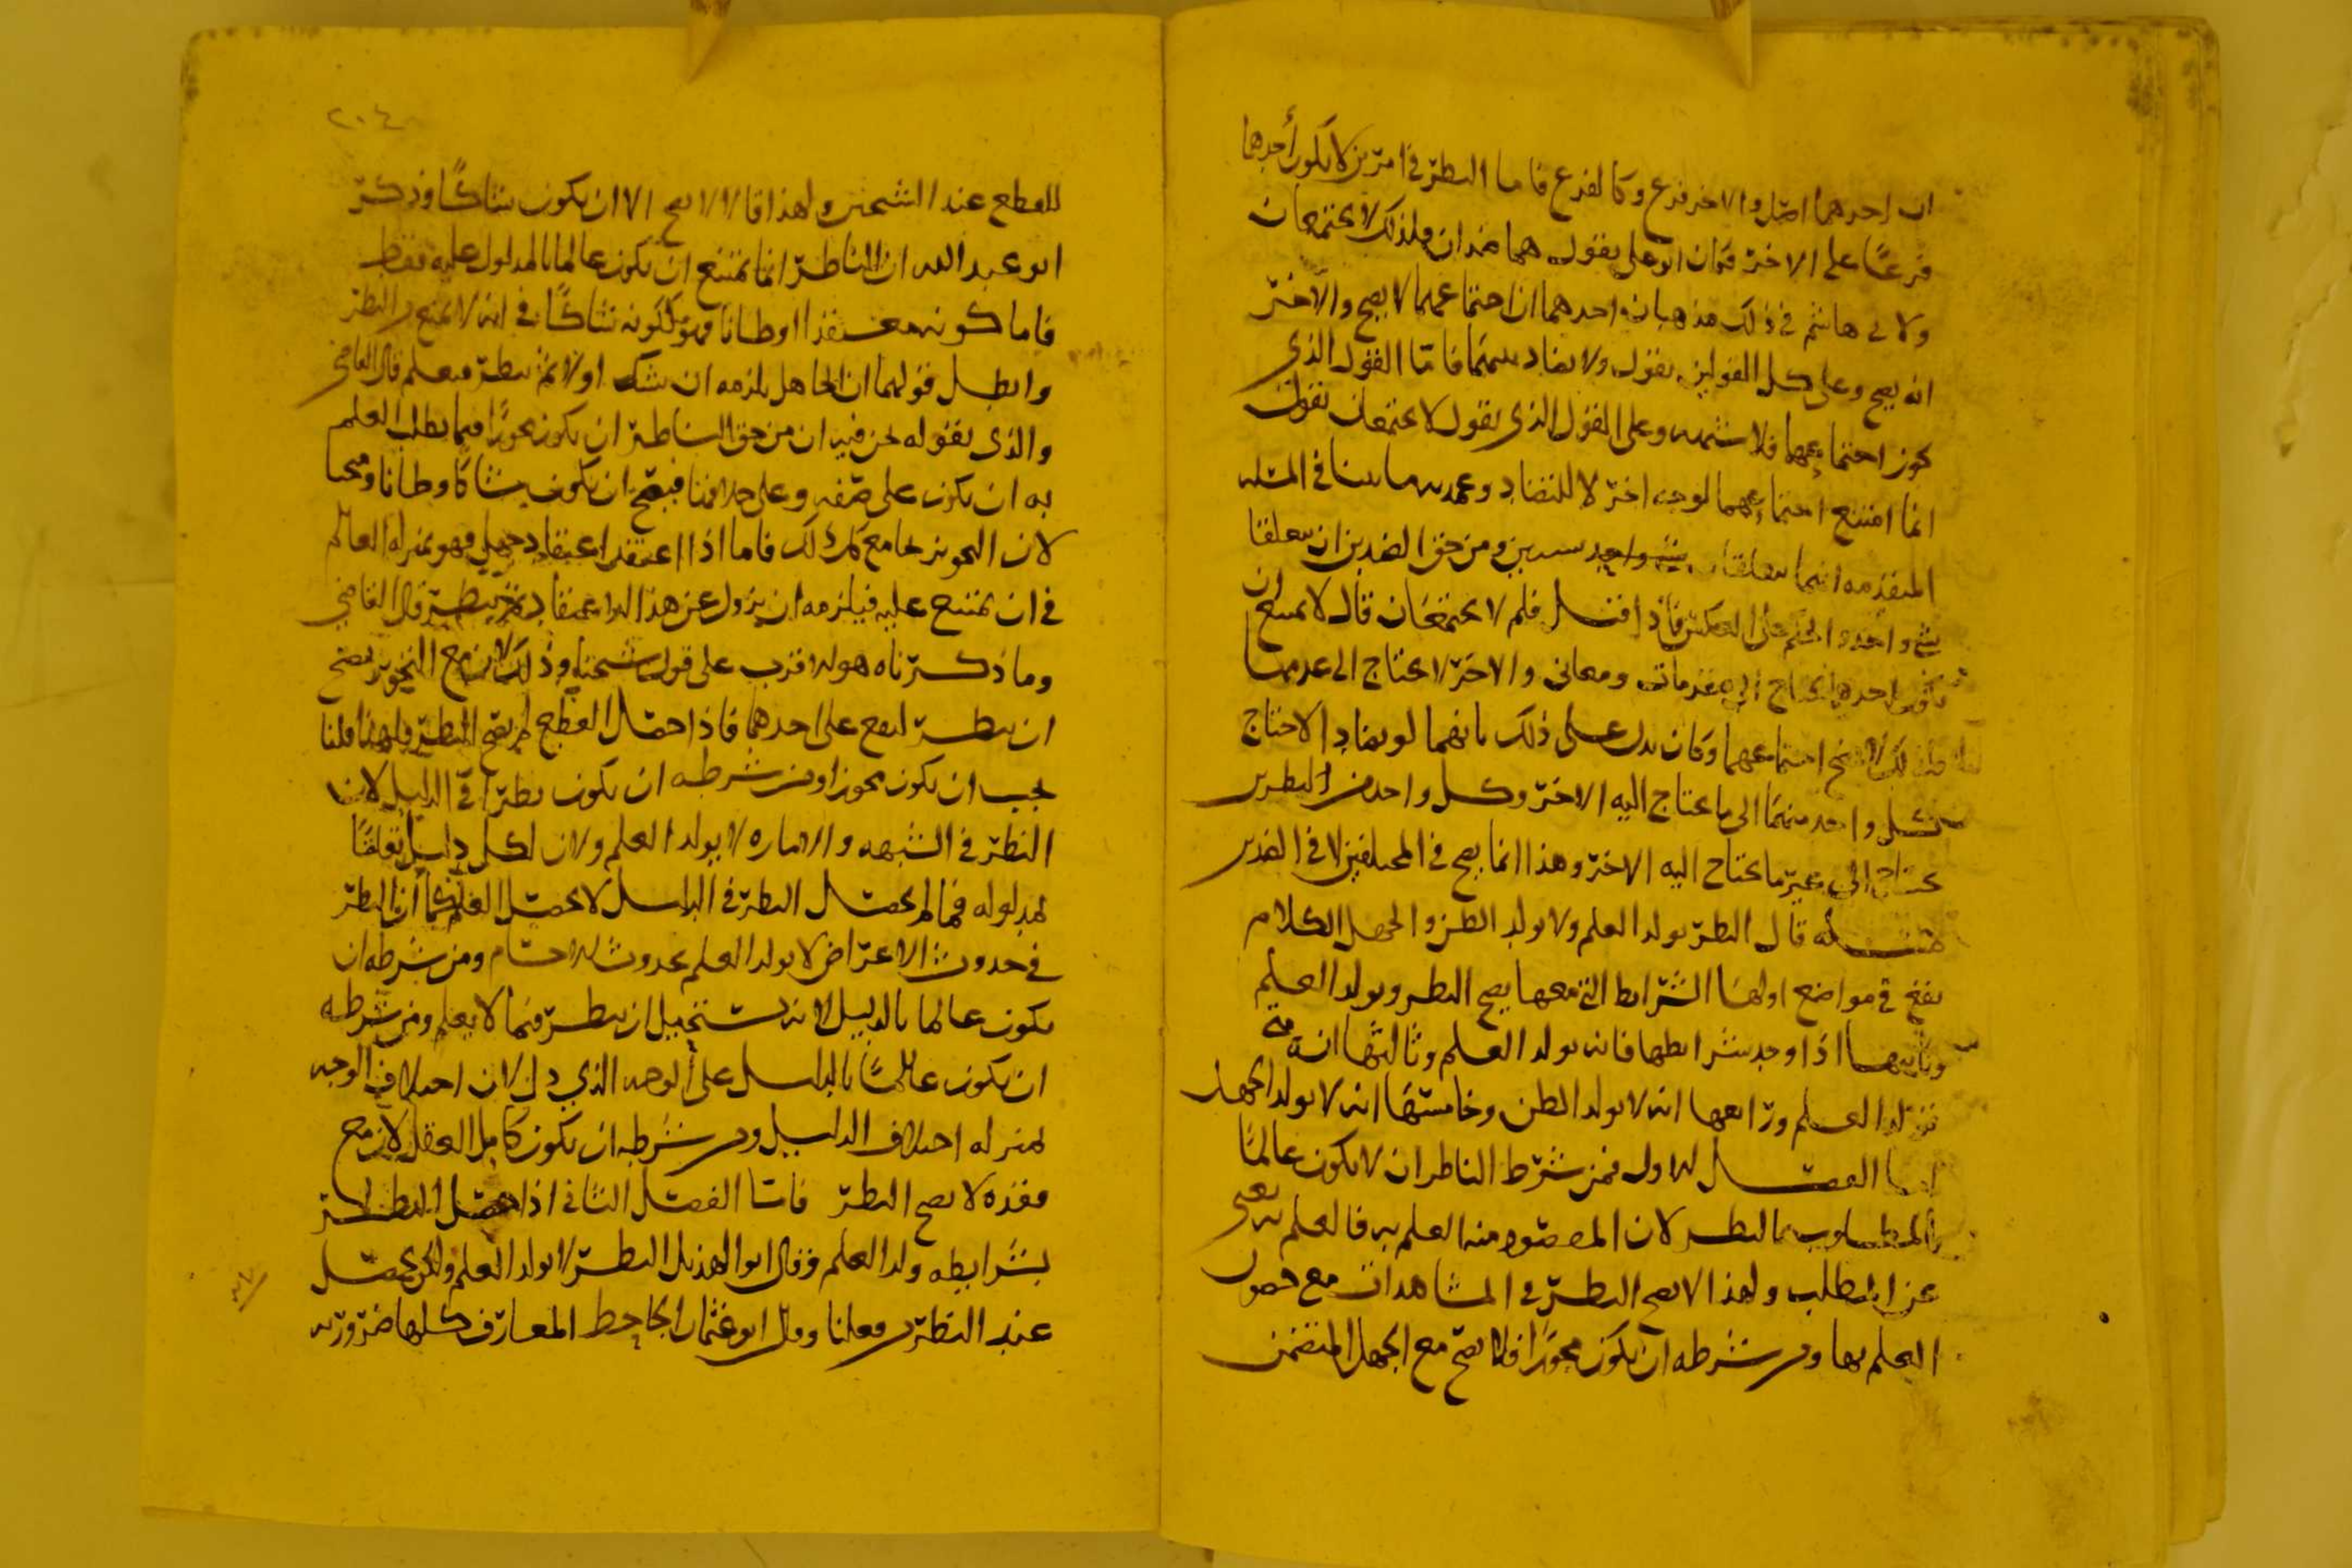 ان احدهما اصل والاخر فرع وكالفرع فاما النظر في امرين لا يكون أحدهما
فرعًا على الاخر فكان ابو علي يقول هما ضدان فلذلك لا يجتمعان
ولابي هاشم في ذلك مذهبان احدهما ان اجتماعهما لا يصح والآخر
انه يصح وعلى كل القولين يقول ولا تضاد بينهما فامّا القول الذي
يجوز اجتماعهما فلا شبهه وعلى القول الذي يقول لا يجتمعان يقول
انما امتنع اجتماعهما لوجه اخر لا للتضاد وعمدته ما بينا في المسله
المتقدمه انهما تعلقا بشيين ومن حق الضدين ان يتعلقا
بشي واحد على العكس فاذا قيل فلم لا يجتمعان قال لا يمتنع ان
يكون احدهما يحتاج الى مقدمات ومعاني والاخر لا يحتاج الى عدمها
فلذلك لا يصح اجتماعهما وكان يدل على ذلك بانهما لو تضادا لاحتاج
كل واحد منهما الى ما يحتاج اليه الاخر وكل واحد من النظرين
يحتاج الى غير ما يحتاج اليه الاخر وهذا انما يصح في المختلفين لا في الضدين
مسله قال النظر يولد العلم ولا يولد الظن والجهل الكلام
يقع في مواضع اولها الشرايط التي معها يصح النظر ويولد العلم
وثانيها اذا وجد بشرايطها فانه يولد العلم وثالثها انه متى
يولد العلم ورابعها انه لا يولد الظن وخامستها انه لا يولد الجهل
اما الفصل الاول فمن شرط الناظر ان لا يكون عالمًا
بالمطلوب بالنظر لان المقصود منه العلم به فالعلم به يغني
عن المطلب ولهذا لا يصح النظر في المشاهدات مع حصول
العلم بها ومن شرطه ان يكون مجوّزا فلا يصح مع الجهل المتضمن
٢٠٤
للقطع عند الشيخين ولهذا قالا لا يصح الا ان يكون شاكًا وذكر
ابو عبد الله ان الناظر انما يمتنع ان يكون عالما بالمدلول عليه فقط
فاما كونه معتقدا او ظانا فهو ككونه شاكًا في انه لا يمنع من النظر
وابطل قولهما ان الجاهل يلزمه ان يشك اولا ثم ينظر فيعلم قال القاضي
والذي يقوله نحن فيه ان من حق الناظر ان يكون مجوزًا فيما يطلب العلم
به ان يكون على صفه وعلى خلافها فيصح ان يكون شاكًا وظانا ومبخا
لان التجويز يجامع كل ذلك فاما اذا اعتقد اعتقاد جهل فهو بمنزله العالم
في ان يمتنع عليه فيلزمه ان يزول عن هذا الاعتقاد ثم ينظر قال القاضي
وما ذكرناه هو الاقرب على قول شيخنا وذلك لان مع التجويز يصح
ان ينظر ليقع على احدهما فاذا حصل القطع لم يصح النظر فلهذا قلنا
يجب ان يكون مجوزا ومن شرطه ان يكون نظرًا في الدليل لان
النظر في الشبهه والاماره لا يولد العلم ولان لكل دليل تعلقًا
بمدلوله فما لم يحصل النظر في الدليل لا يحصل العلم كما ان النظر
في حدوث الاعراض لا يولد العلم بحدوث الاجسام ومن شرطه ان
يكون عالما بالدليل لانه يستحيل ان ينظر فيما لا يعلم ومن شرطه
ان يكون عالمًا بالدليل على الوجه الذي دل لان اختلاف الوجه
بمنزله اختلاف الدليل ومن شرطه ان يكون كامل العقل لان مع
فقده لا يصح النظر فامّا الفصل الثاني اذا حصل النظر
بشرايطه ولد العلم وقال ابو الهذيل النظر لا يولد العلم ولكن يحصل
عند النظر فعلنا وقال ابو عثمان الجاحظ المعارف كلها ضروريه